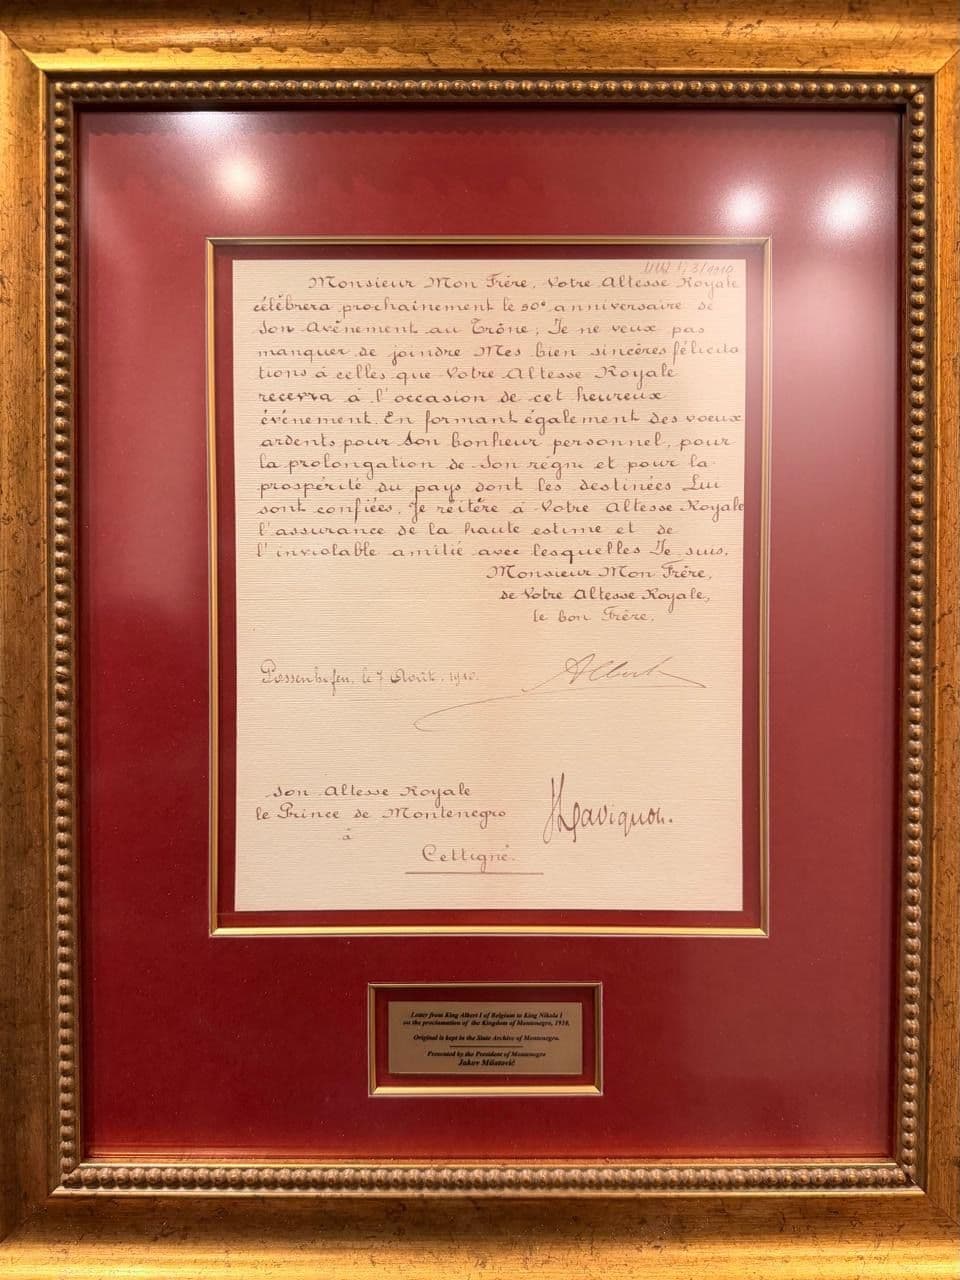 Monsieur Mon Frère, Votre Altesse Royale
célèbrera prochainement le 50e anniversaire de
Son Avènement au Trône; Je ne veux pas
manquer de joindre Mes bien sincères félicita
tions à celles que Votre Altesse Royale
recevra à l'occasion de cet heureux
événement. En formant également des voeux
ardents pour Son bonheur personnel, pour
la prolongation de Son règne et pour la
prospérité du pays dont les destinées Lui
sont confiées, Je réitère à Votre Altesse Royale
l'assurance de la haute estime et de
l'inviolable amitié avec lesquelles Je suis,
Monsieur Mon Frère,
de Votre Altesse Royale,
le bon Frère,
Possenhofen, le 7 Août 1910.
Albert
Son Altesse Royale
le Prince de Montenegro
à
Cettigné.
Letter from King Albert I of Belgium to King Nikola I
on the proclamation of the Kingdom of Montenegro, 1910.
Original is kept in the State Archive of Montenegro.
Presented by the President of Montenegro
Jakov Milatović